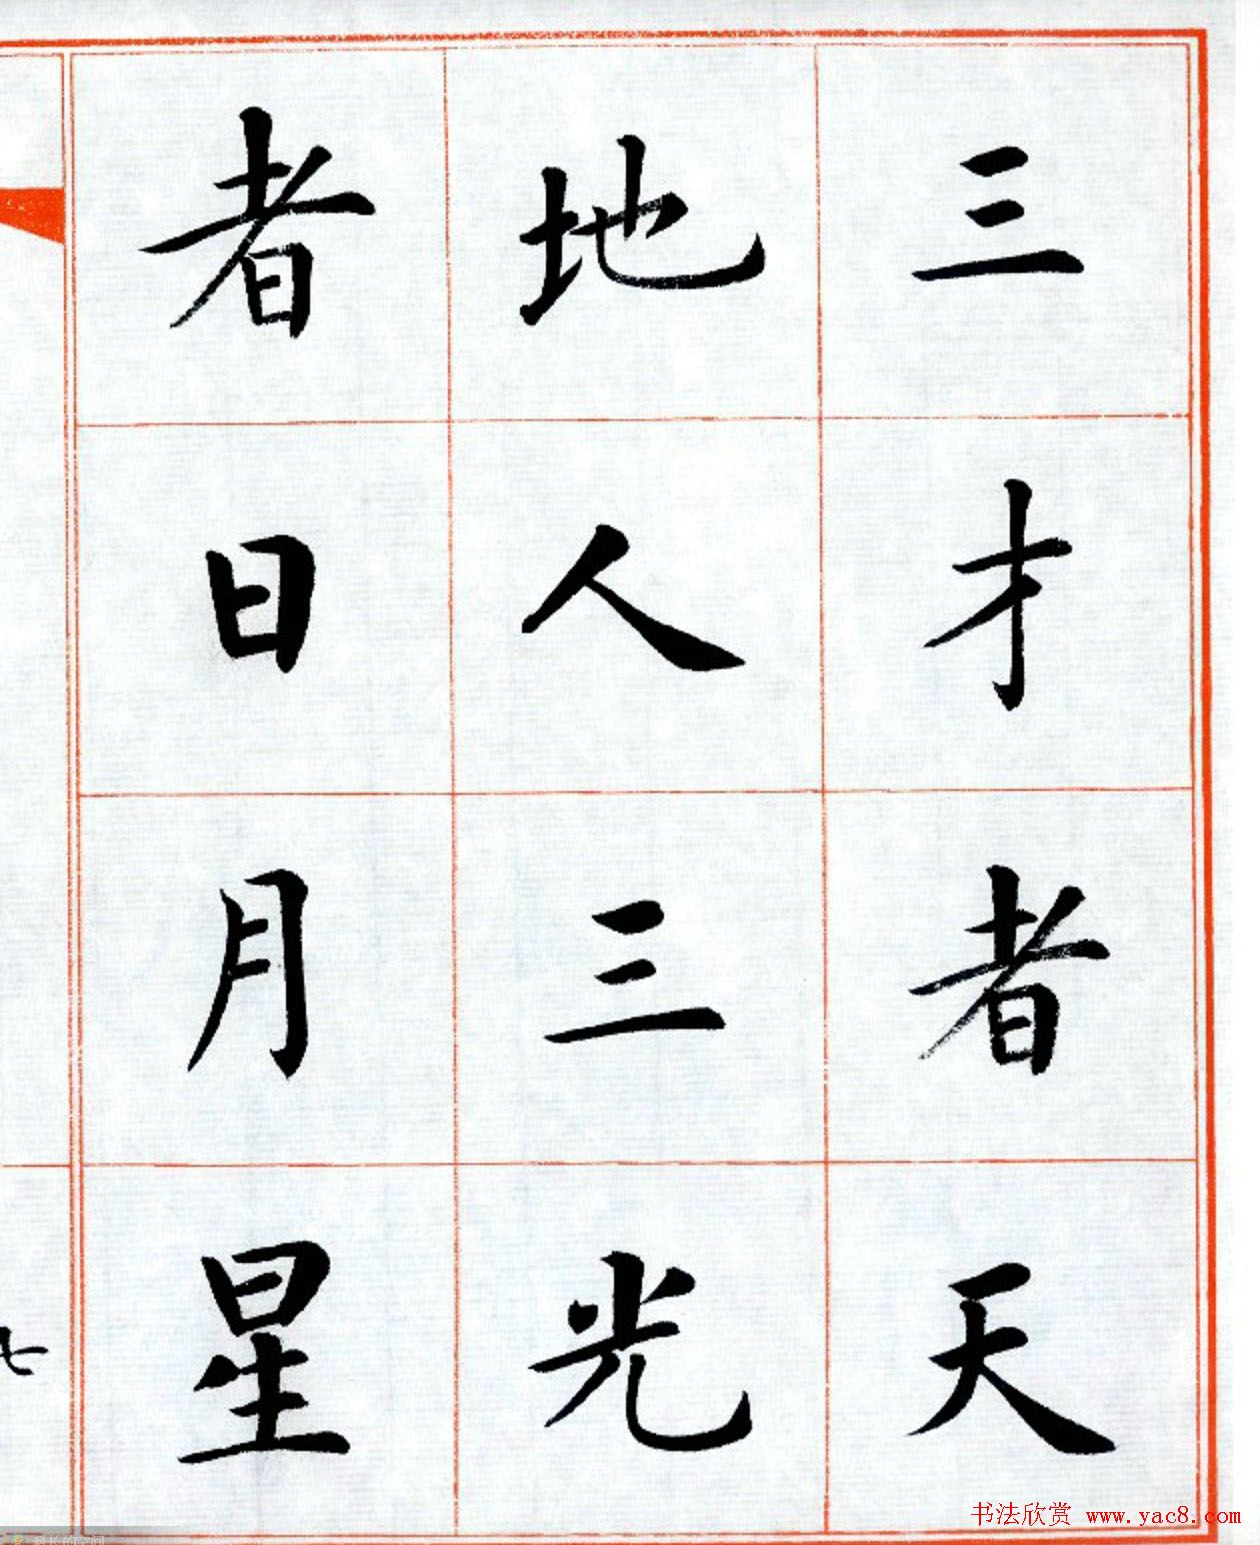 三才者天
地人三光
者日月星
七
书法欣赏 www.yac8.com